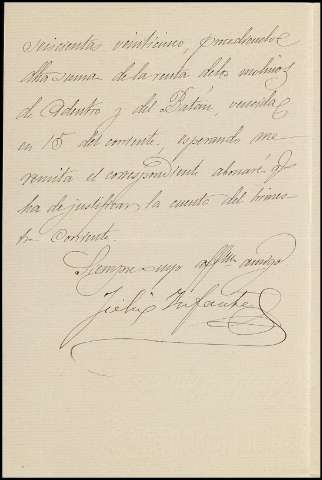 seiscientas veinticinco, procedente
dha suma de la renta de los molinos
de Adentro y del Batán, vencida
en 15 del corriente, esperando me
remita el correspondiente abonaré q.
ha de justificar la cuenta del trimes-
tre corriente.
Siempre suyo affmo amigo
Felix Infante